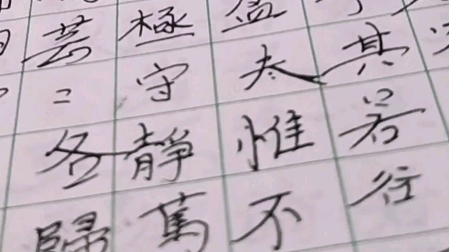 其若
盈夫惟不
極守靜篤
芸二各歸